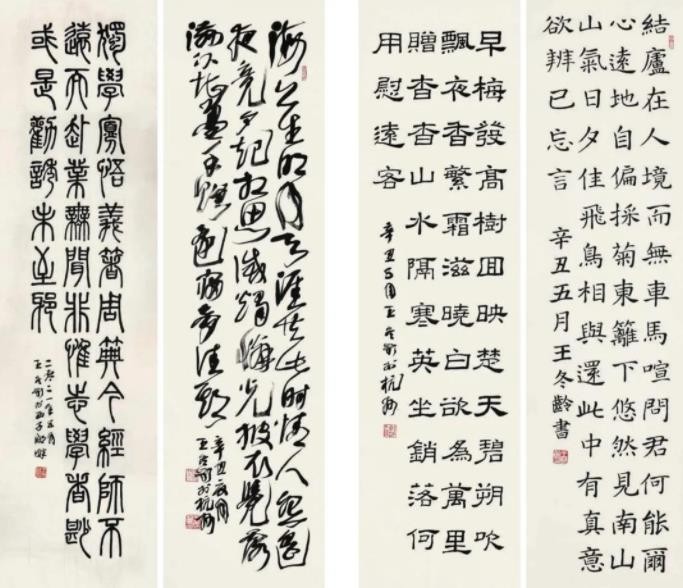 結廬在人境而無車馬喧問君何能爾
心遠地自偏採菊東籬下悠然見南山
山氣日夕佳飛鳥相與還此中有真意
欲辨已忘言
辛丑五月王冬齡書
早梅發高樹迥映楚天碧朔吹
飄夜香繁霜滋曉白欲為萬里
贈杳杳山水隔寒英坐銷落何
用慰遠客
辛丑五月王冬齡於杭州
海上生明月天涯共此時情人怨遙
夜竟夕起相思滅燭憐光披衣覺露
滋不堪盈手贈還寢夢佳期
辛丑五月
王冬齡於杭州
獨學寡悟義著周典今經師不
遠而赴業無聞非惟志學者尠
或是勸誘未至邪
二零二一年五月
王冬齡於西子湖畔